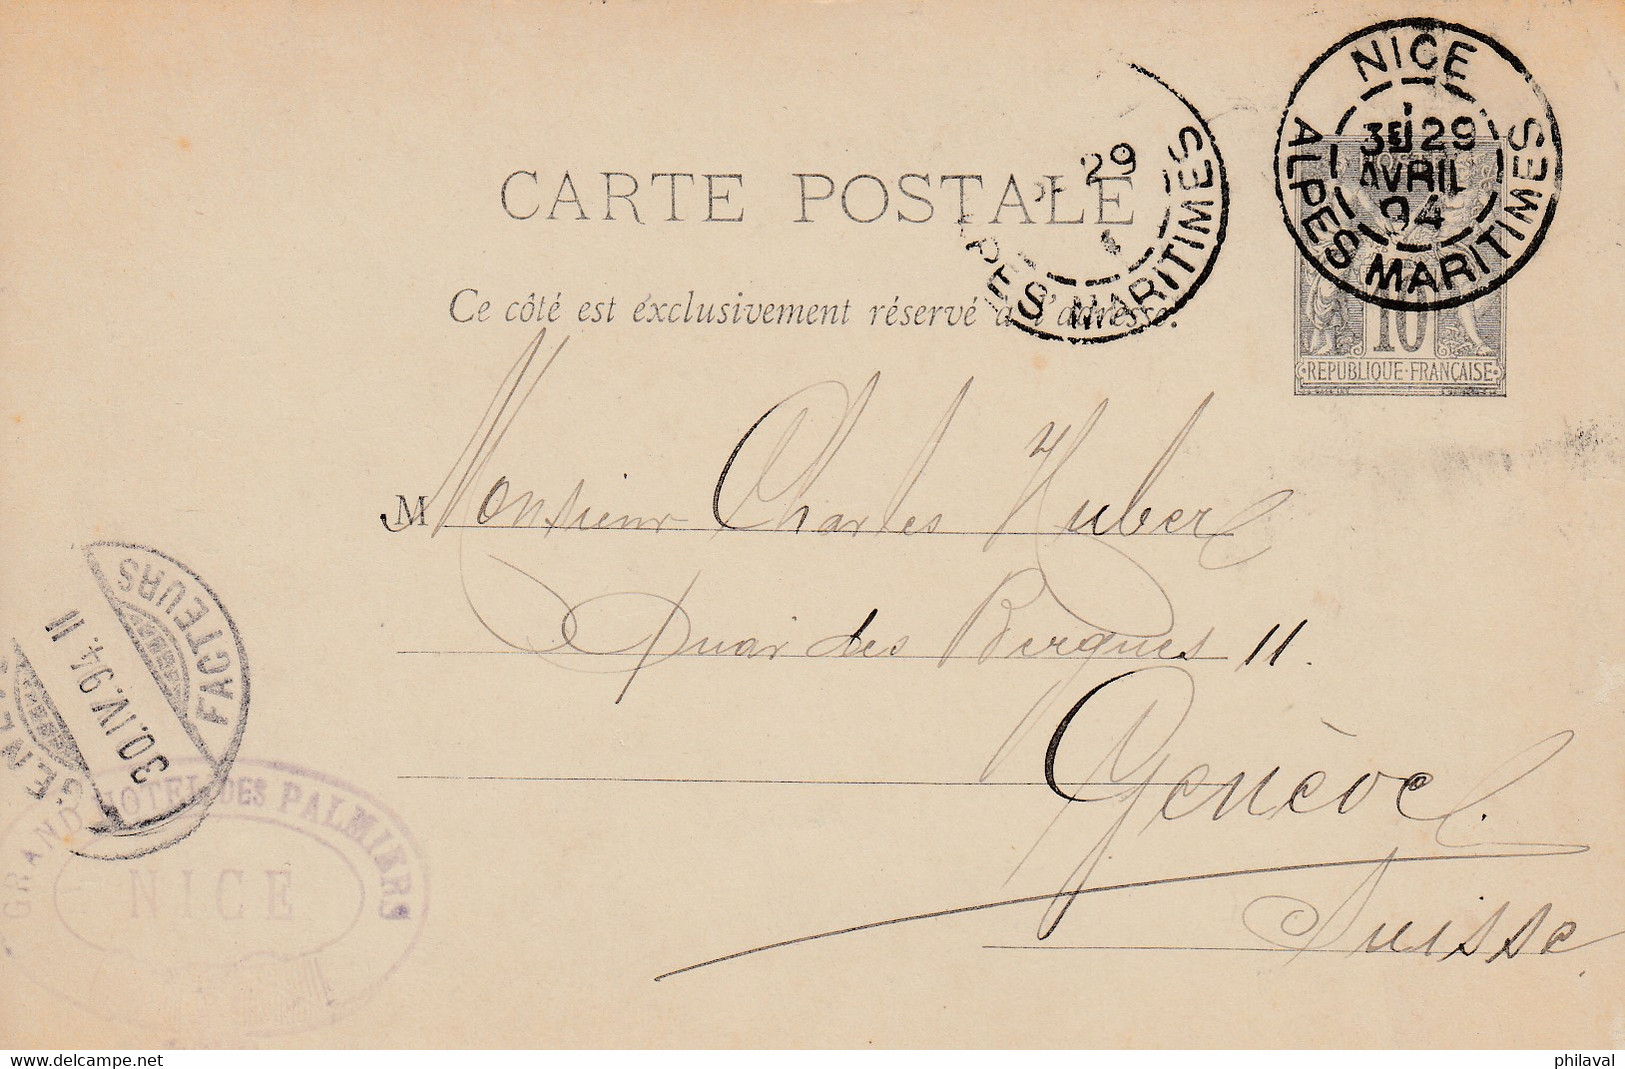 NICE
3E/29
AVRIL
94
ALPES MARITIMES
29
PES MARITIMES
CARTE POSTALE
Ce côté est exclusivement réservé à l'adresse.
10
REPUBLIQUE·FRANÇAISE
M Monsieur Charles Huber
Quai des Bergues 11.
Genève.
Suisse
FACTEURS
30.IV.94. II
GENÈVE
GRAND HOTEL DES PALMIERS
NICE
www.delcampe.net
philaval